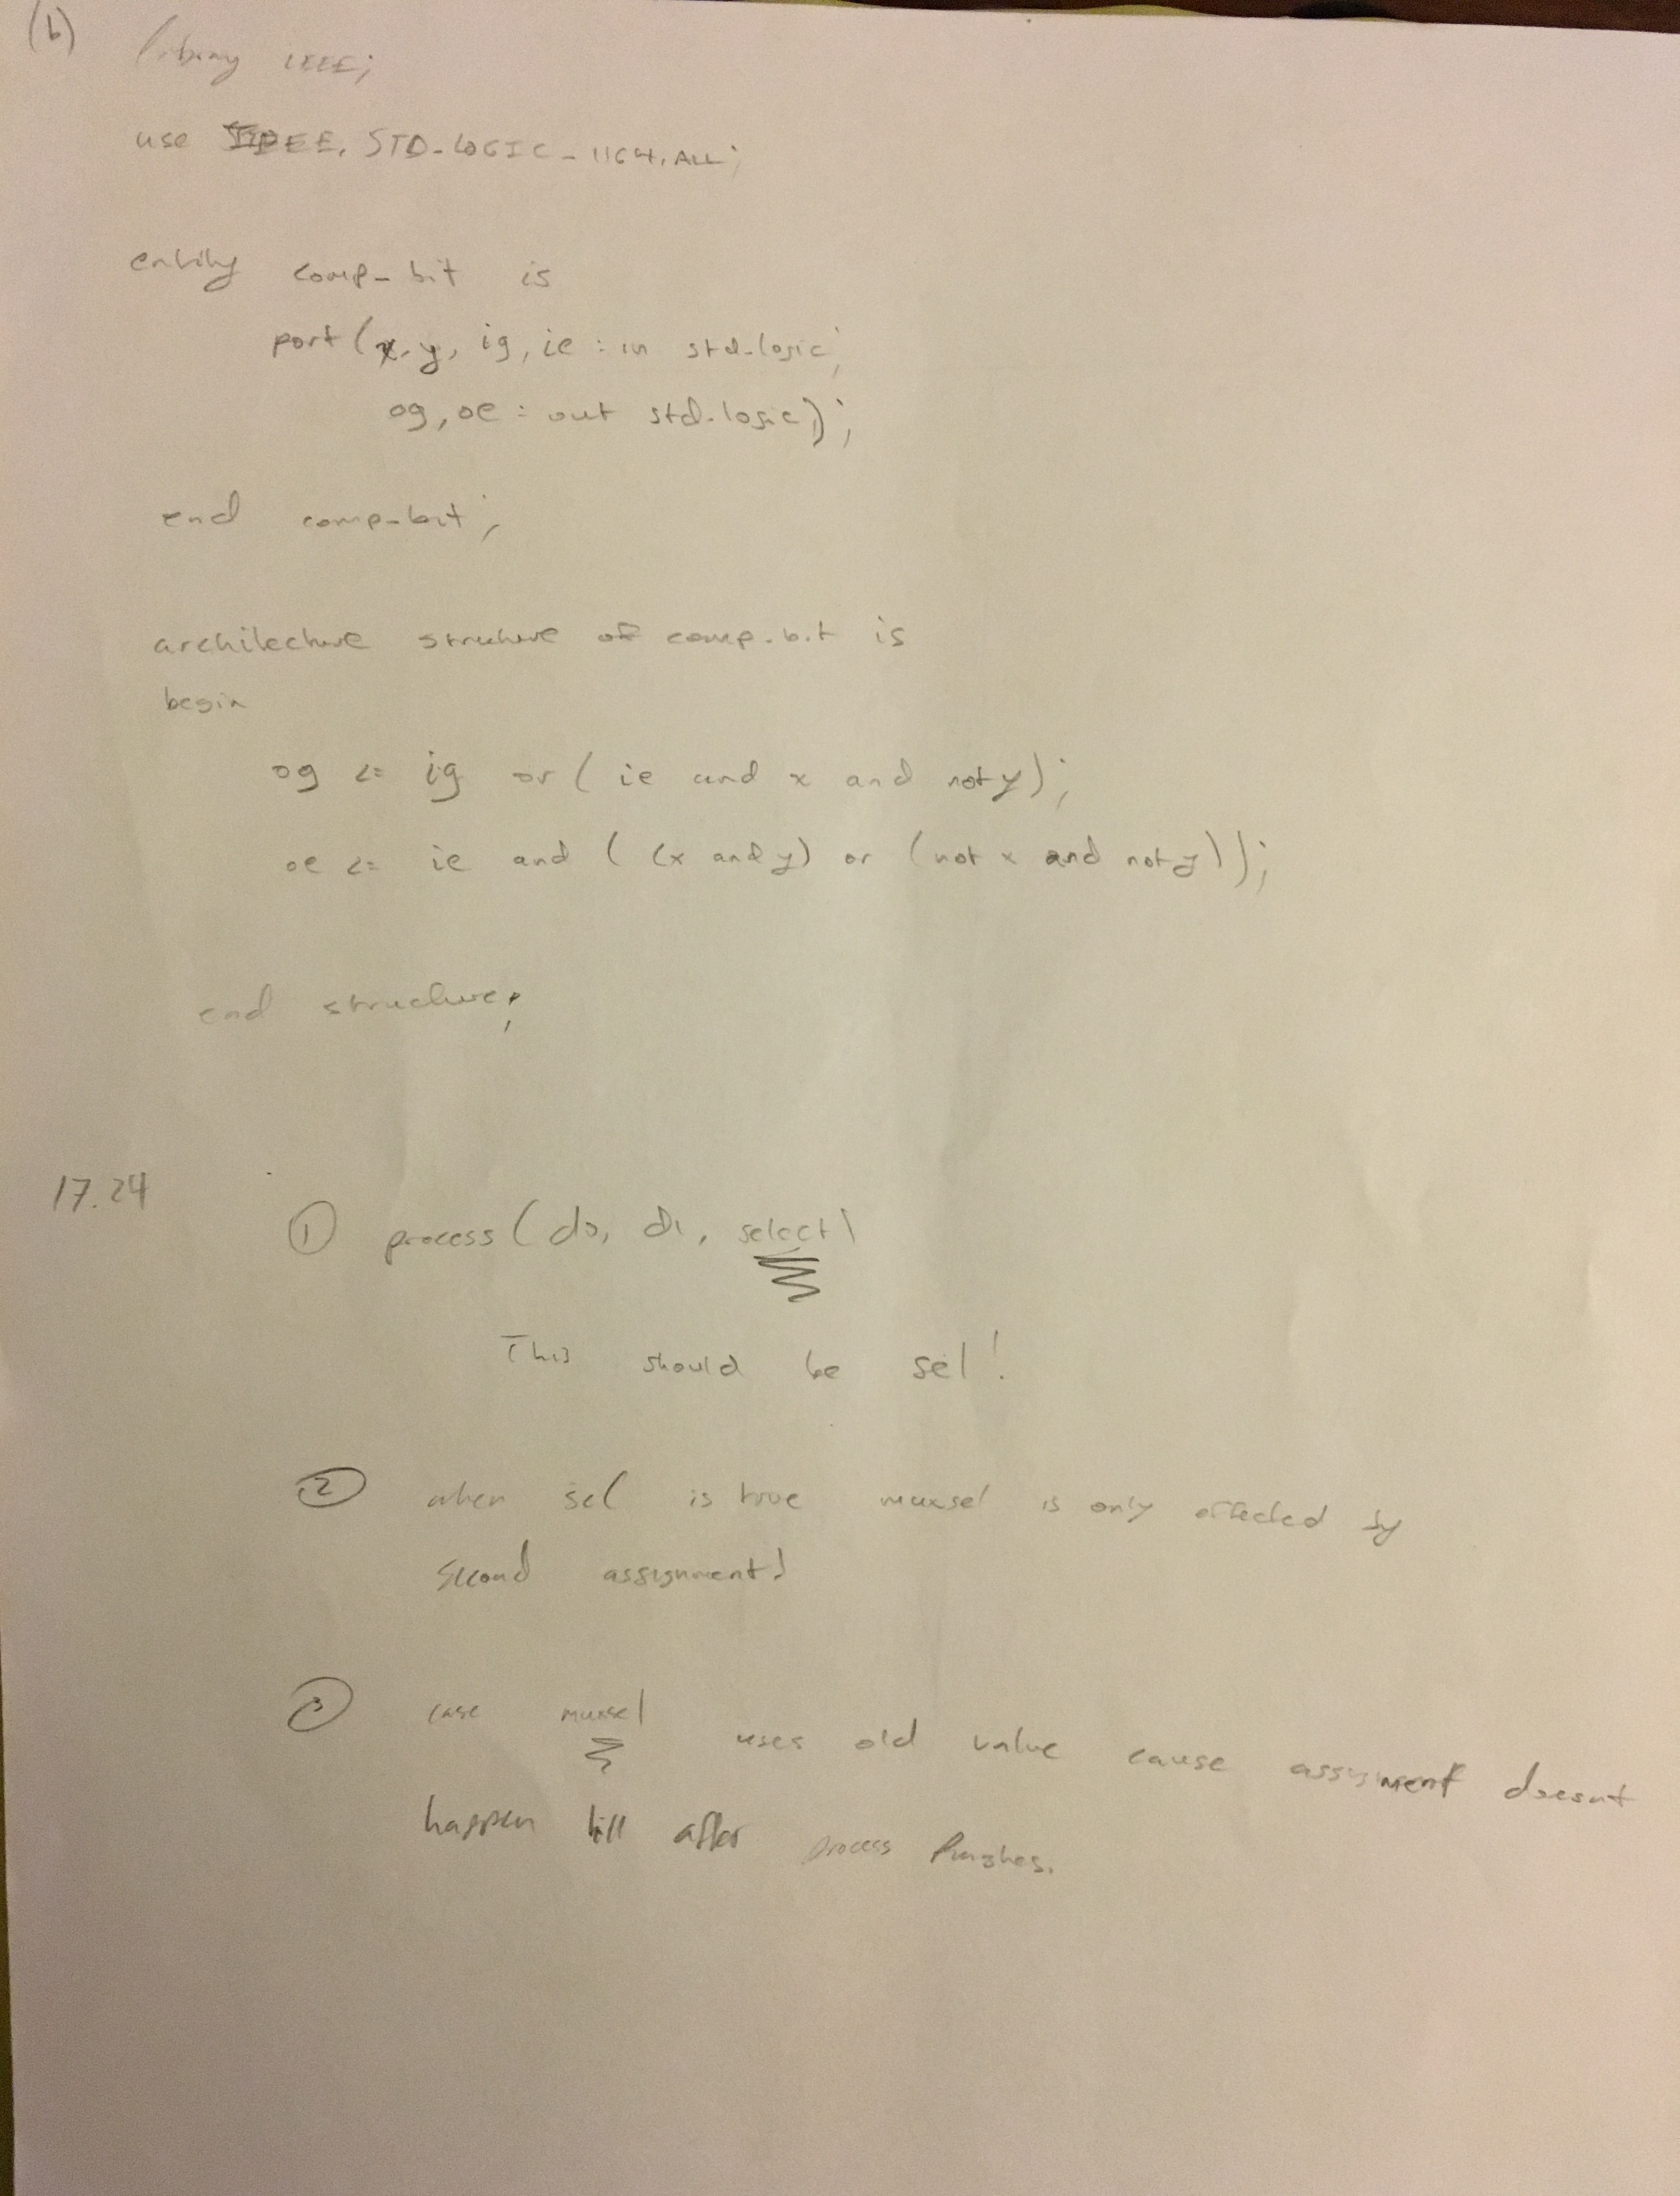 (b) library IEEE;
use IEEE. STD-LOGIC-1164.ALL;
entity comp-bit is
port (x, y, ig, ie : in std-logic;
og, oe : out std-logic);
end comp-bit;
architecture structure of comp-bit is
begin
og <= ig or ( ie and x and not y);
oe <= ie and ( (x and y) or (not x and not y));
end structure;
17.24 ① process (d0, d1, select)
This should be sel!
② when sel is true muxsel is only affected by
second assignment!
③ case muxsel uses old value cause assignment doesnt
happen till after process finishes.